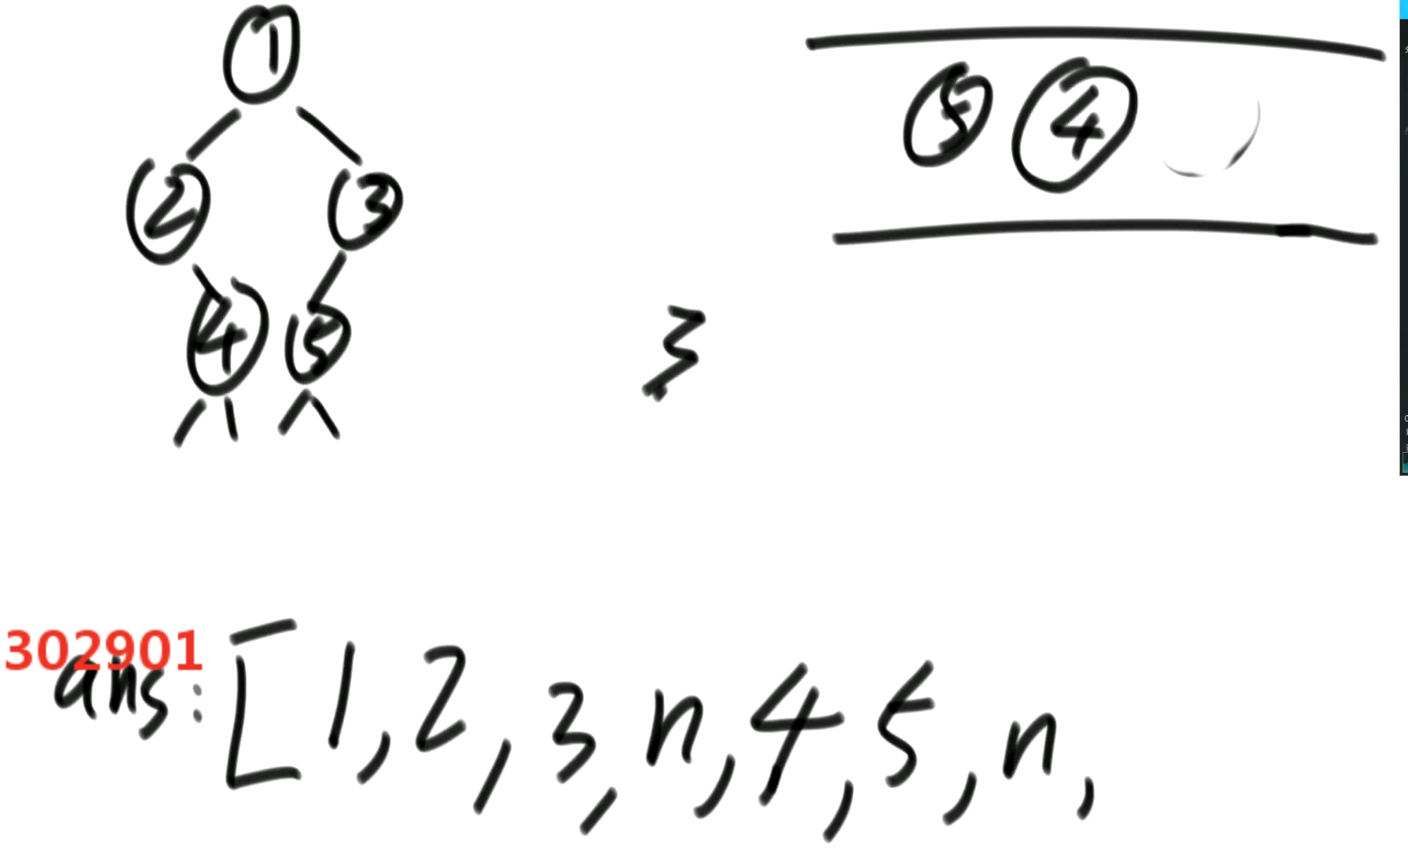 1
5 4
2 3
4 5
3
302901
ans: [1,2,3,n,4,5,n,